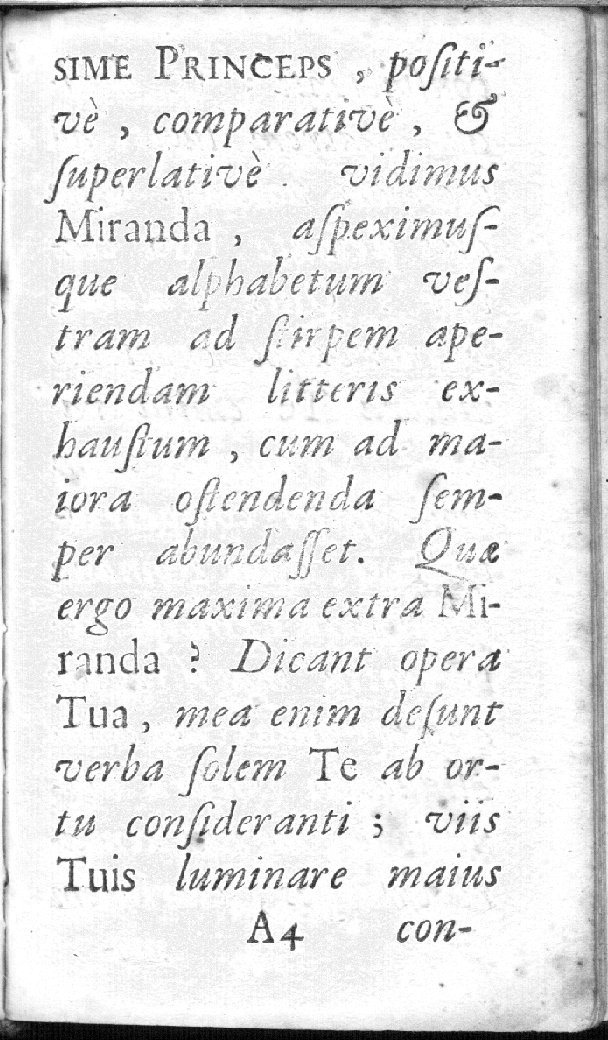 SIME PRINCEPS , poſiti-
vè , comparativè , &
ſuperlativè . vidimus
Miranda , aſpeximuſ-
que alphabetum veſ-
tram ad ſtirpem ape-
riendam litteris ex-
hauſtum , cum ad ma-
iora oſtendenda ſem-
per abundaſſet. Quæ
ergo maxima extra Mi-
randa ? Dicant opera
Tua , mea enim deſunt
verba ſolem Te ab or-
tu conſideranti ; viis
Tuis luminare maius
A4 con-